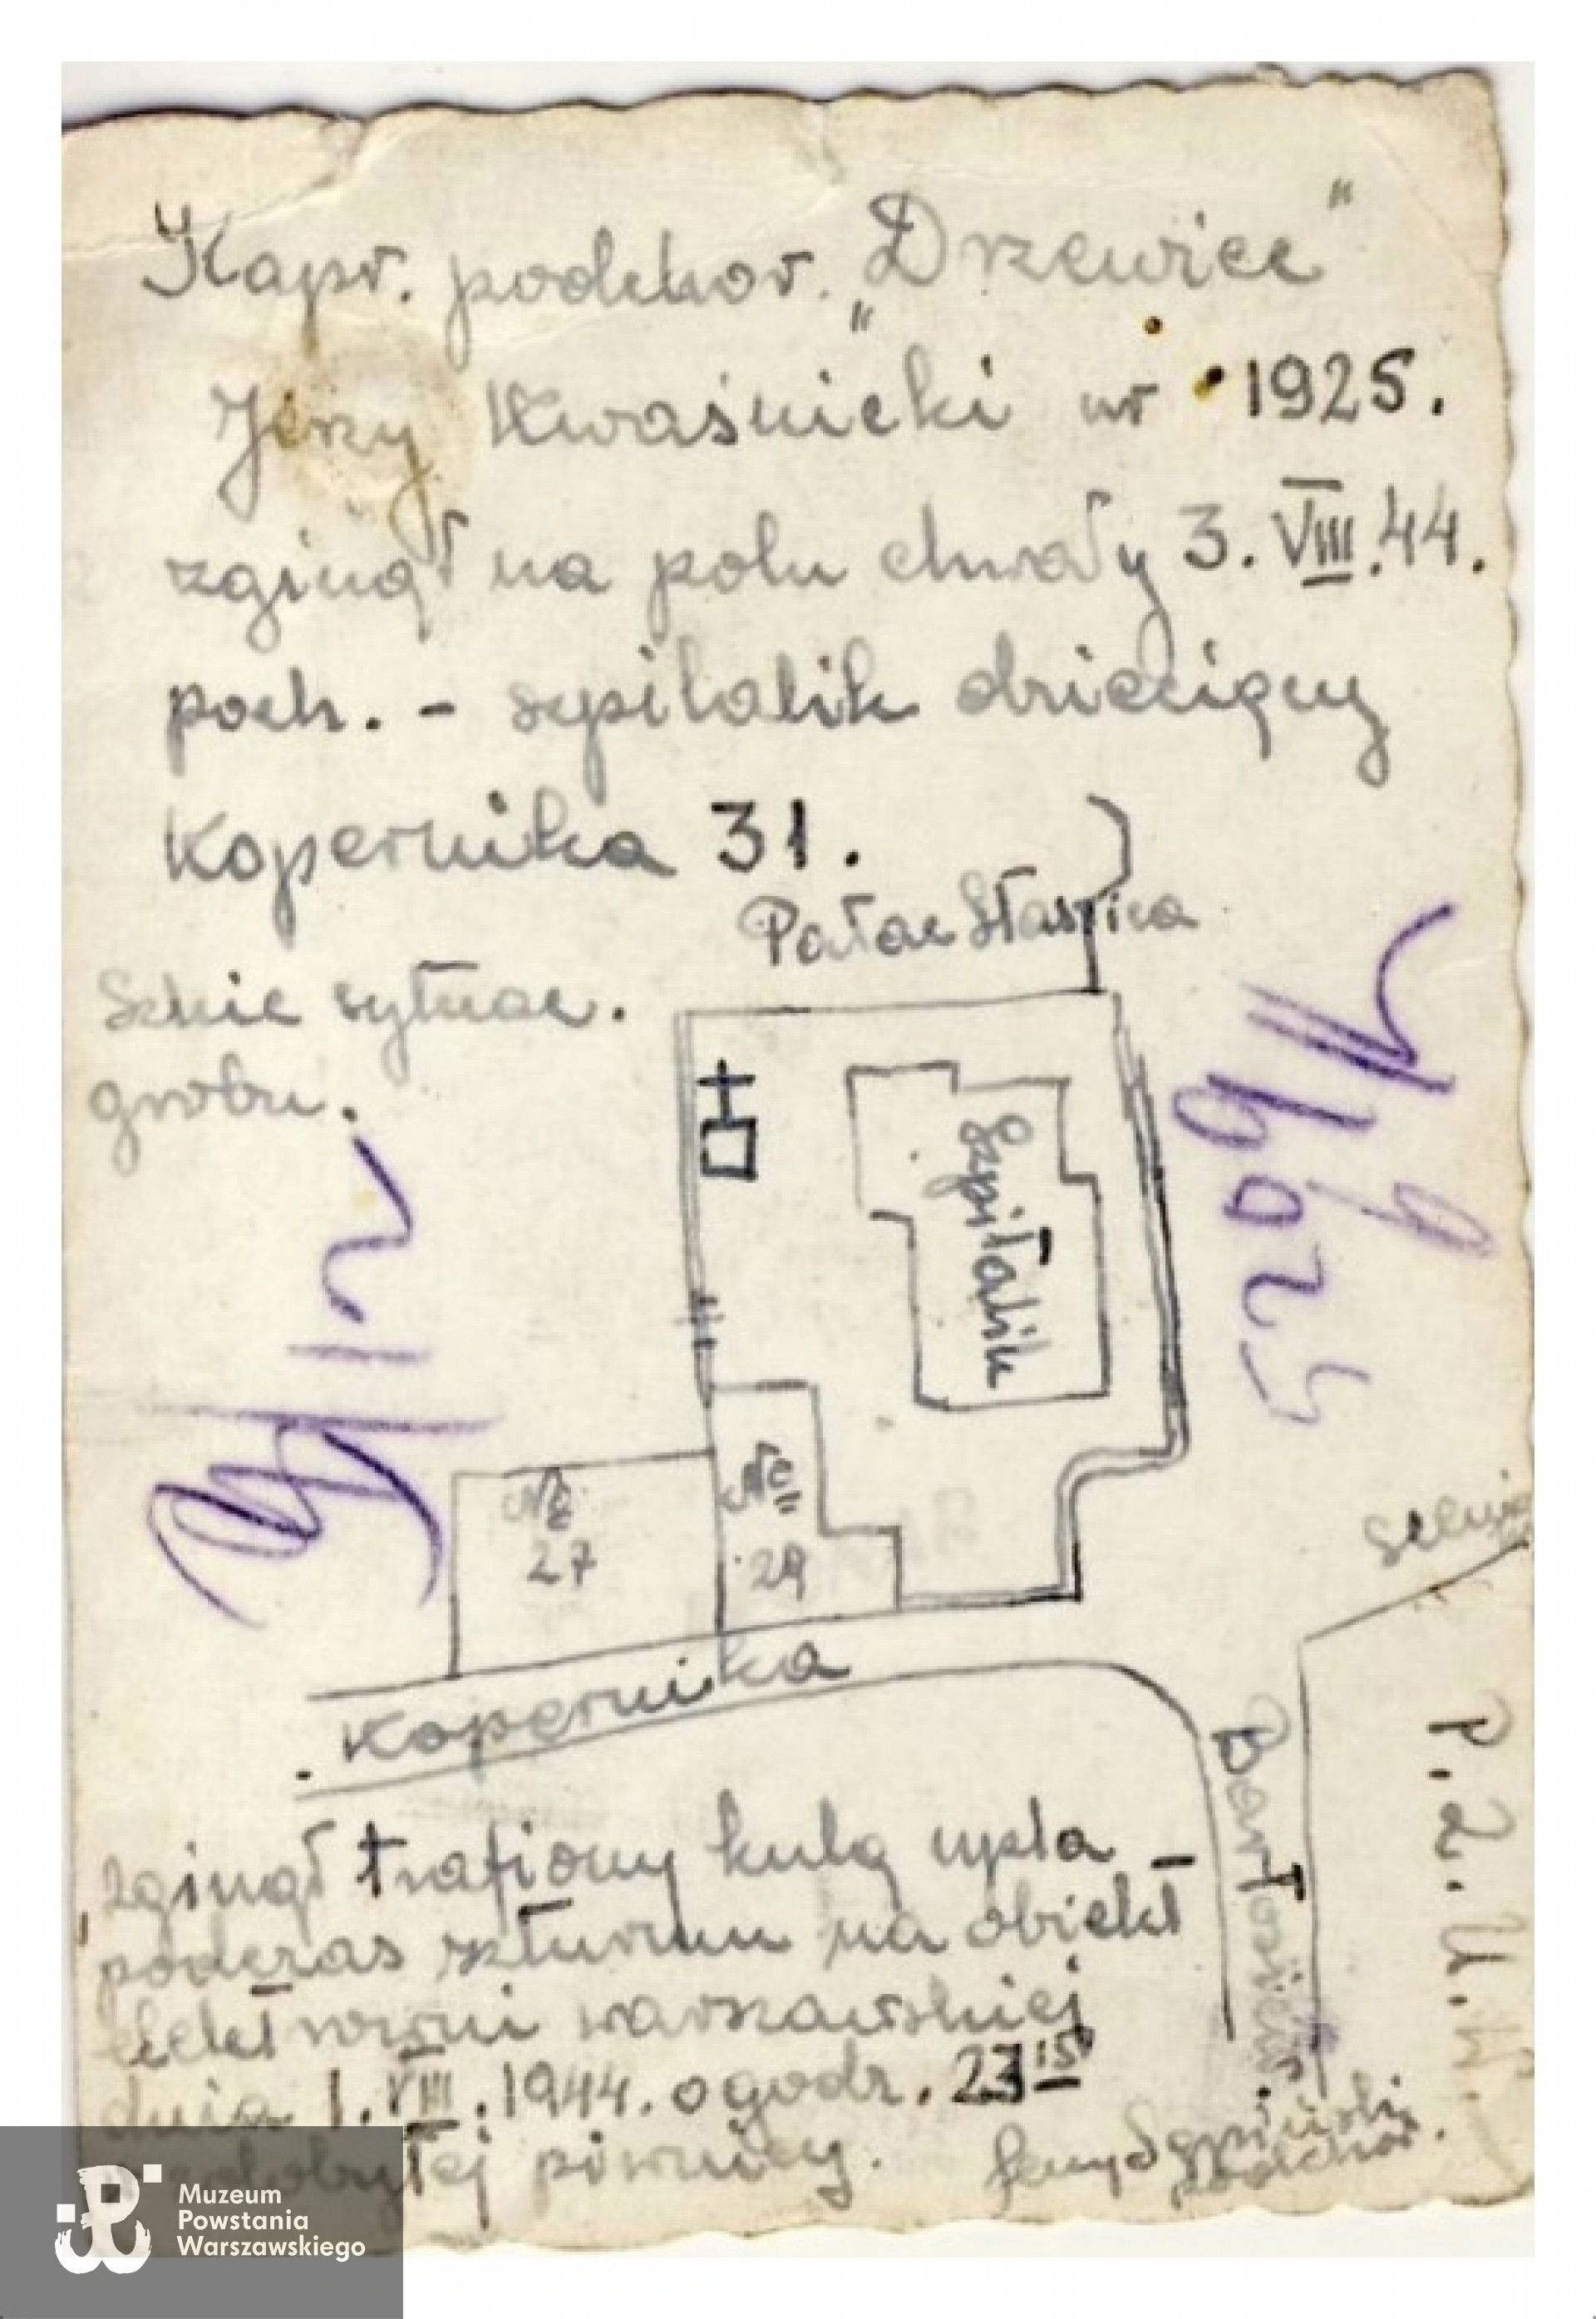 Kapr. podchor. „Drzewiec"
Jerzy Kwaśnicki ur 1925.
zginął na polu chwały 3. VIII. 44.
poch. - szpitalik dziecięcy
Kopernika 31.
Pałac Staszica
Szkic sytuac.
grobu.
Szpitalik
№
27
№
29
Kopernika
P.Z.U.W.
zginął trafiony kulą npla
podczas szturmu na obiekt
elektrowni warszawskiej
dnia 1. VIII. 1944. o godz. 23 15
piwnicy.
podchor.
Muzeum
Powstania
Warszawskiego